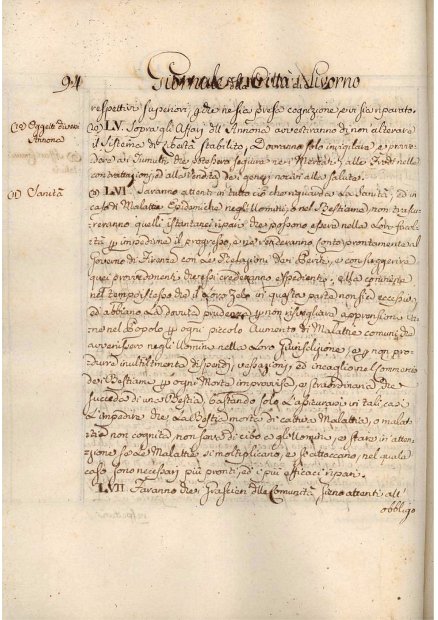 94 Giornale della Città di Livorno
respettivi Superiori, che ne sia presa cognizione, e vi sia riparato.
(12) Oggetti diversi
Annona
(12) LV. Sopra gli Affari dell'Annona avvertiranno di non alterare
il Sistema di Libertà stabilito, e Dovranno solo invigilare, e provve-
dere ai Tumulti, che potessero seguire nei Mercati, alle Frodi nelle
contrattazioni, ed alla Vendita dei generi nocivi alla salute.
Sanità
LVI. Saranno attenti in tutto ciò che riguarda la Sanità, ed in
caso di Malattie Epidemiche negli Uomini, o nel Bestiame, non trascu-
reranno quelli istantanei ripari, che possono essere nella Loro facol-
tà per impedirne il progresso, e ne renderanno Conto prontamente al
Governo di Firenze con le Relazioni dei Periti, e con suggerire
quei provvedimenti, che essi crederanno espedienti,
nel tempo stesso che il Loro Zelo in questa parte non sia eccessivo
ed abbiano la dovuta prudenza per non risvegliare apprensione
ne nel Popolo per ogni piccolo Aumento di Malattie comuni, che
avvenissero negli Uomini nella Loro Giurisdizione, e per non pro-
durre inutilmente dispendj, vessazioni, ed incaglio nel Commercio
dei Bestiami per ogni Morte improvvisa, e straordinaria che
succeda di una Bestia, bastando solo in tali casi
l'impedire, che la Bestia morta di cattiva Malattia, o malat-
tia non cognita non serva di cibo a gli Uomini, e stare in atten-
zione se le Malattie si moltiplicano, e si attaccano, nel quale
caso sono necessarj più pronti, ed i più efficaci ripari.
LVII. Faranno che i Grascieri delle Comunità, sieno attenti all'
obbligo